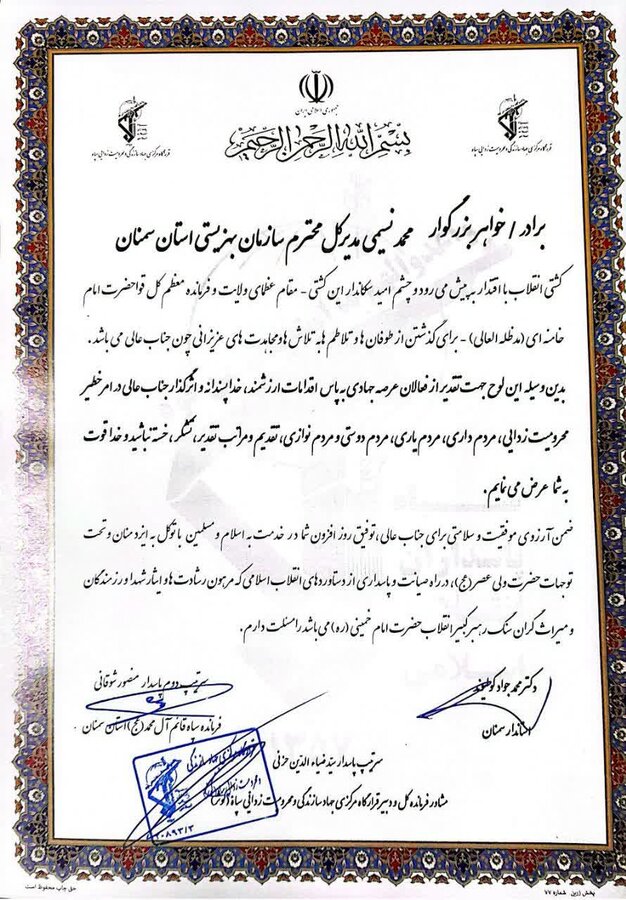 جمهوری اسلامی ایران
بسم الله الرحمن الرحیم
قرارگاه مرکزی جهاد سازندگی و محرومیت زدایی سپاه
قرارگاه مرکزی جهاد سازندگی و محرومیت زدایی سپاه
برادر / خواهر بزرگوار محمد نسیمی مدیرکل محترم سازمان بهزیستی استان سمنان
کشتی انقلاب با اقتدار به پیش می رود و چشم امید سکاندار این کشتی - مقام عظمای ولایت و فرمانده معظم کل قوا حضرت امام
خامنه ای (مدظله العالی) - برای گذشتن از طوفان ها و تلاطم ها به تلاش ها و مجاهدت های عزیزانی چون جناب عالی می باشد .
بدین وسیله این لوح جهت تقدیر از فعالان عرصه جهادی به پاس اقدامات ارزشمند، خداپسندانه و اثرگذار جناب عالی در امر خطیر
محرومیت زدایی، مردم داری، مردم یاری، مردم دوستی و مردم نوازی، تقدیم و مراتب تقدیر، تشکر، خسته نباشید و خدا قوت
به شما عرض می نمایم.
ضمن آرزوی موفقیت و سلامتی برای جناب عالی، توفیق روز افزون شما در خدمت به اسلام و مسلمین با توکل به ایزد منان و تحت
توجهات حضرت ولی عصر (عج)، در راه صیانت و پاسداری از دستاوردهای انقلاب اسلامی که مرهون رشادت ها و ایثار شهدا و رزمندگان
و میراث گران سنگ رهبر کبیر انقلاب حضرت امام خمینی (ره) می باشد را مسئلت دارم.
دکتر محمد جواد کولیوند
استاندار سمنان
سرتیپ دوم پاسدار منصور شوقانی
فرمانده سپاه قائم آل محمد (عج) استان سمنان
سرتیپ پاسدار سید ضیاء الدین حزنی
مشاور فرمانده کل و دبیر قرارگاه مرکزی جهاد سازندگی و محرومیت زدایی سپاه
پخش زرین شماره ۷۷
حق چاپ محفوظ است